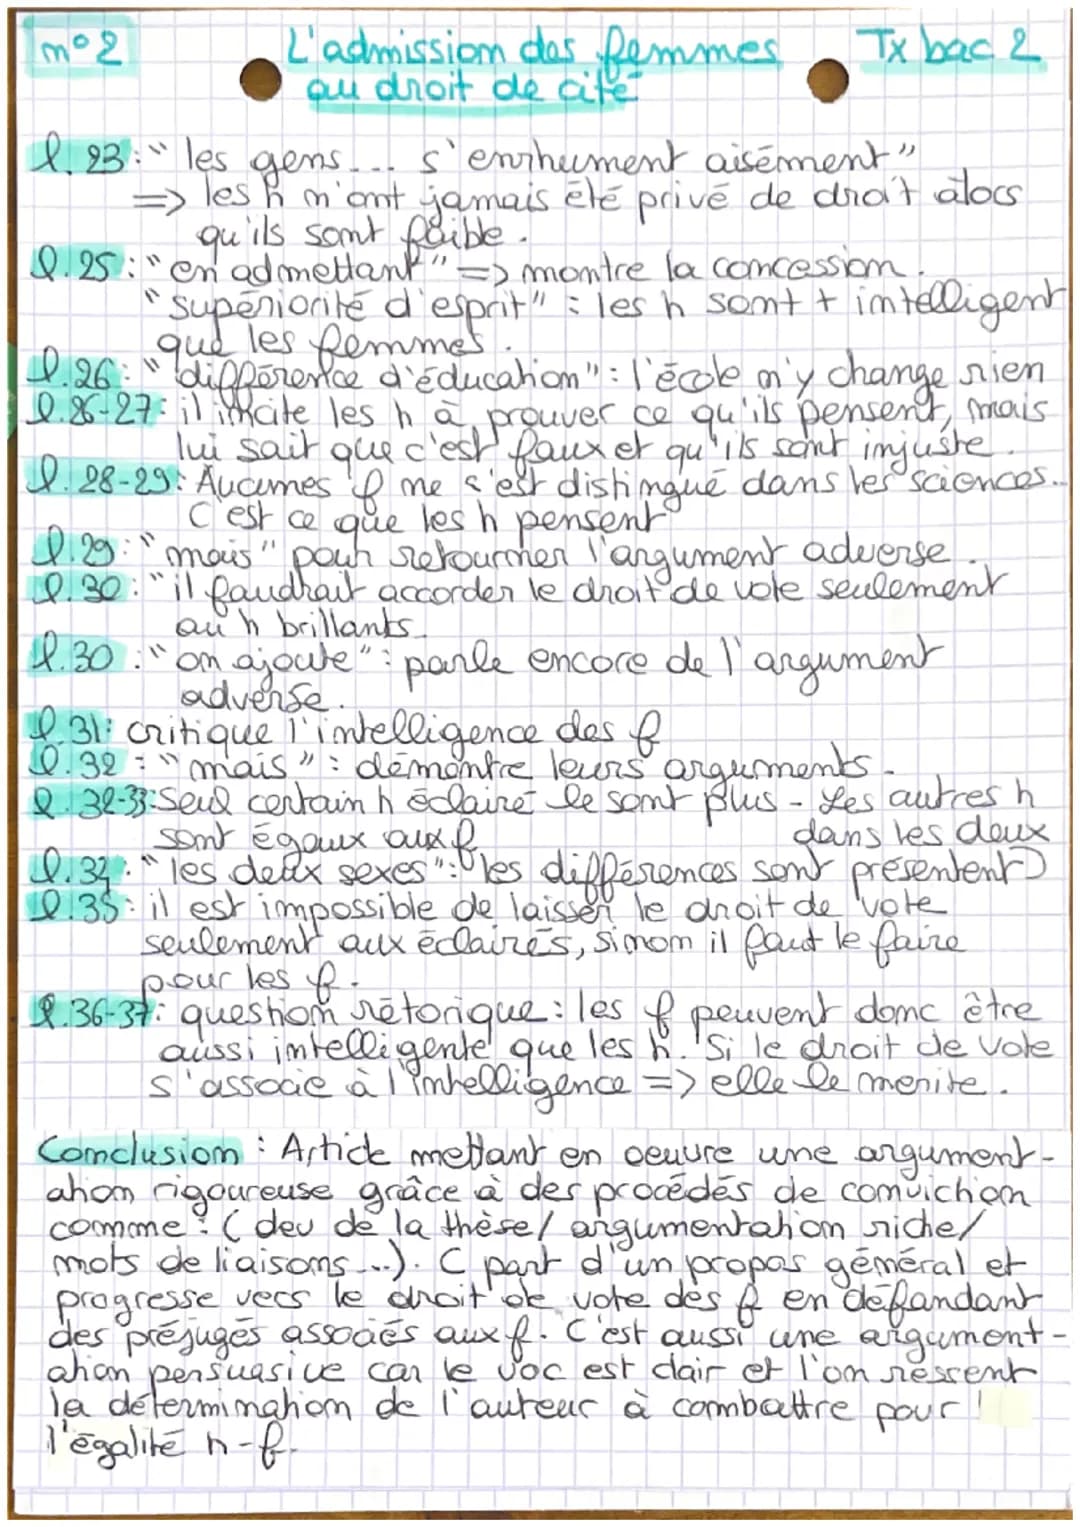 n°2
L'admission des femmes
au droit de cité
Tx bac 2
l.23 : "les gens... s'enrhument aisément"
=> les h n'ont jamais été privé de droit alors
qu'ils sont faible.
l.25 : "en admettant" => montre la concession.
"supériorité d'esprit" : les h sont + intelligent
que les femmes.
l.26 : "différence d'éducation" : l'école n'y change rien
l.26-27 : il incite les h à prouver ce qu'ils pensent, mais
lui sait que c'est faux et qu'ils sont injuste.
l.28-29 : Aucunes f ne s'est distingué dans les sciences...
C'est ce que les h pensent
l.29 : "mais" pour retourner l'argument adverse.
l.30 : "il faudrait accorder le droit de vote seulement
au h brillants.
l.30 : "on ajoute" : parle encore de l'argument
adverse.
l.31 : critique l'intelligence des f
l.32 : "mais" : démontre leurs arguments.
l.32-33 : Seul certain h éclairé le sont plus - Les autres h
sont égaux aux f
dans les deux
l.34 : "les deux sexes" : les différences sont présentent
l.35 : il est impossible de laisser le droit de vote
seulement aux éclairés, sinon il faut le faire
pour les f.
l.36-37 : question rétorique : les f peuvent donc être
aussi intelligente que les h. Si le droit de vote
s'associe à l'intelligence => elle le merite.
Conclusion : Article mettant en oeuvre une argument-
ation rigoureuse grâce à des procédés de conviction
comme : (dev de la thèse/ argumentation riche/
mots de liaisons...). C part d'un propos général et
progresse vers le droit de vote des f en défandant
des préjugés associés aux f. C'est aussi une argument-
ation persuasive car le voc est clair et l'on ressent
la détermination de l'auteur à combattre pour
l'égalité h-f.